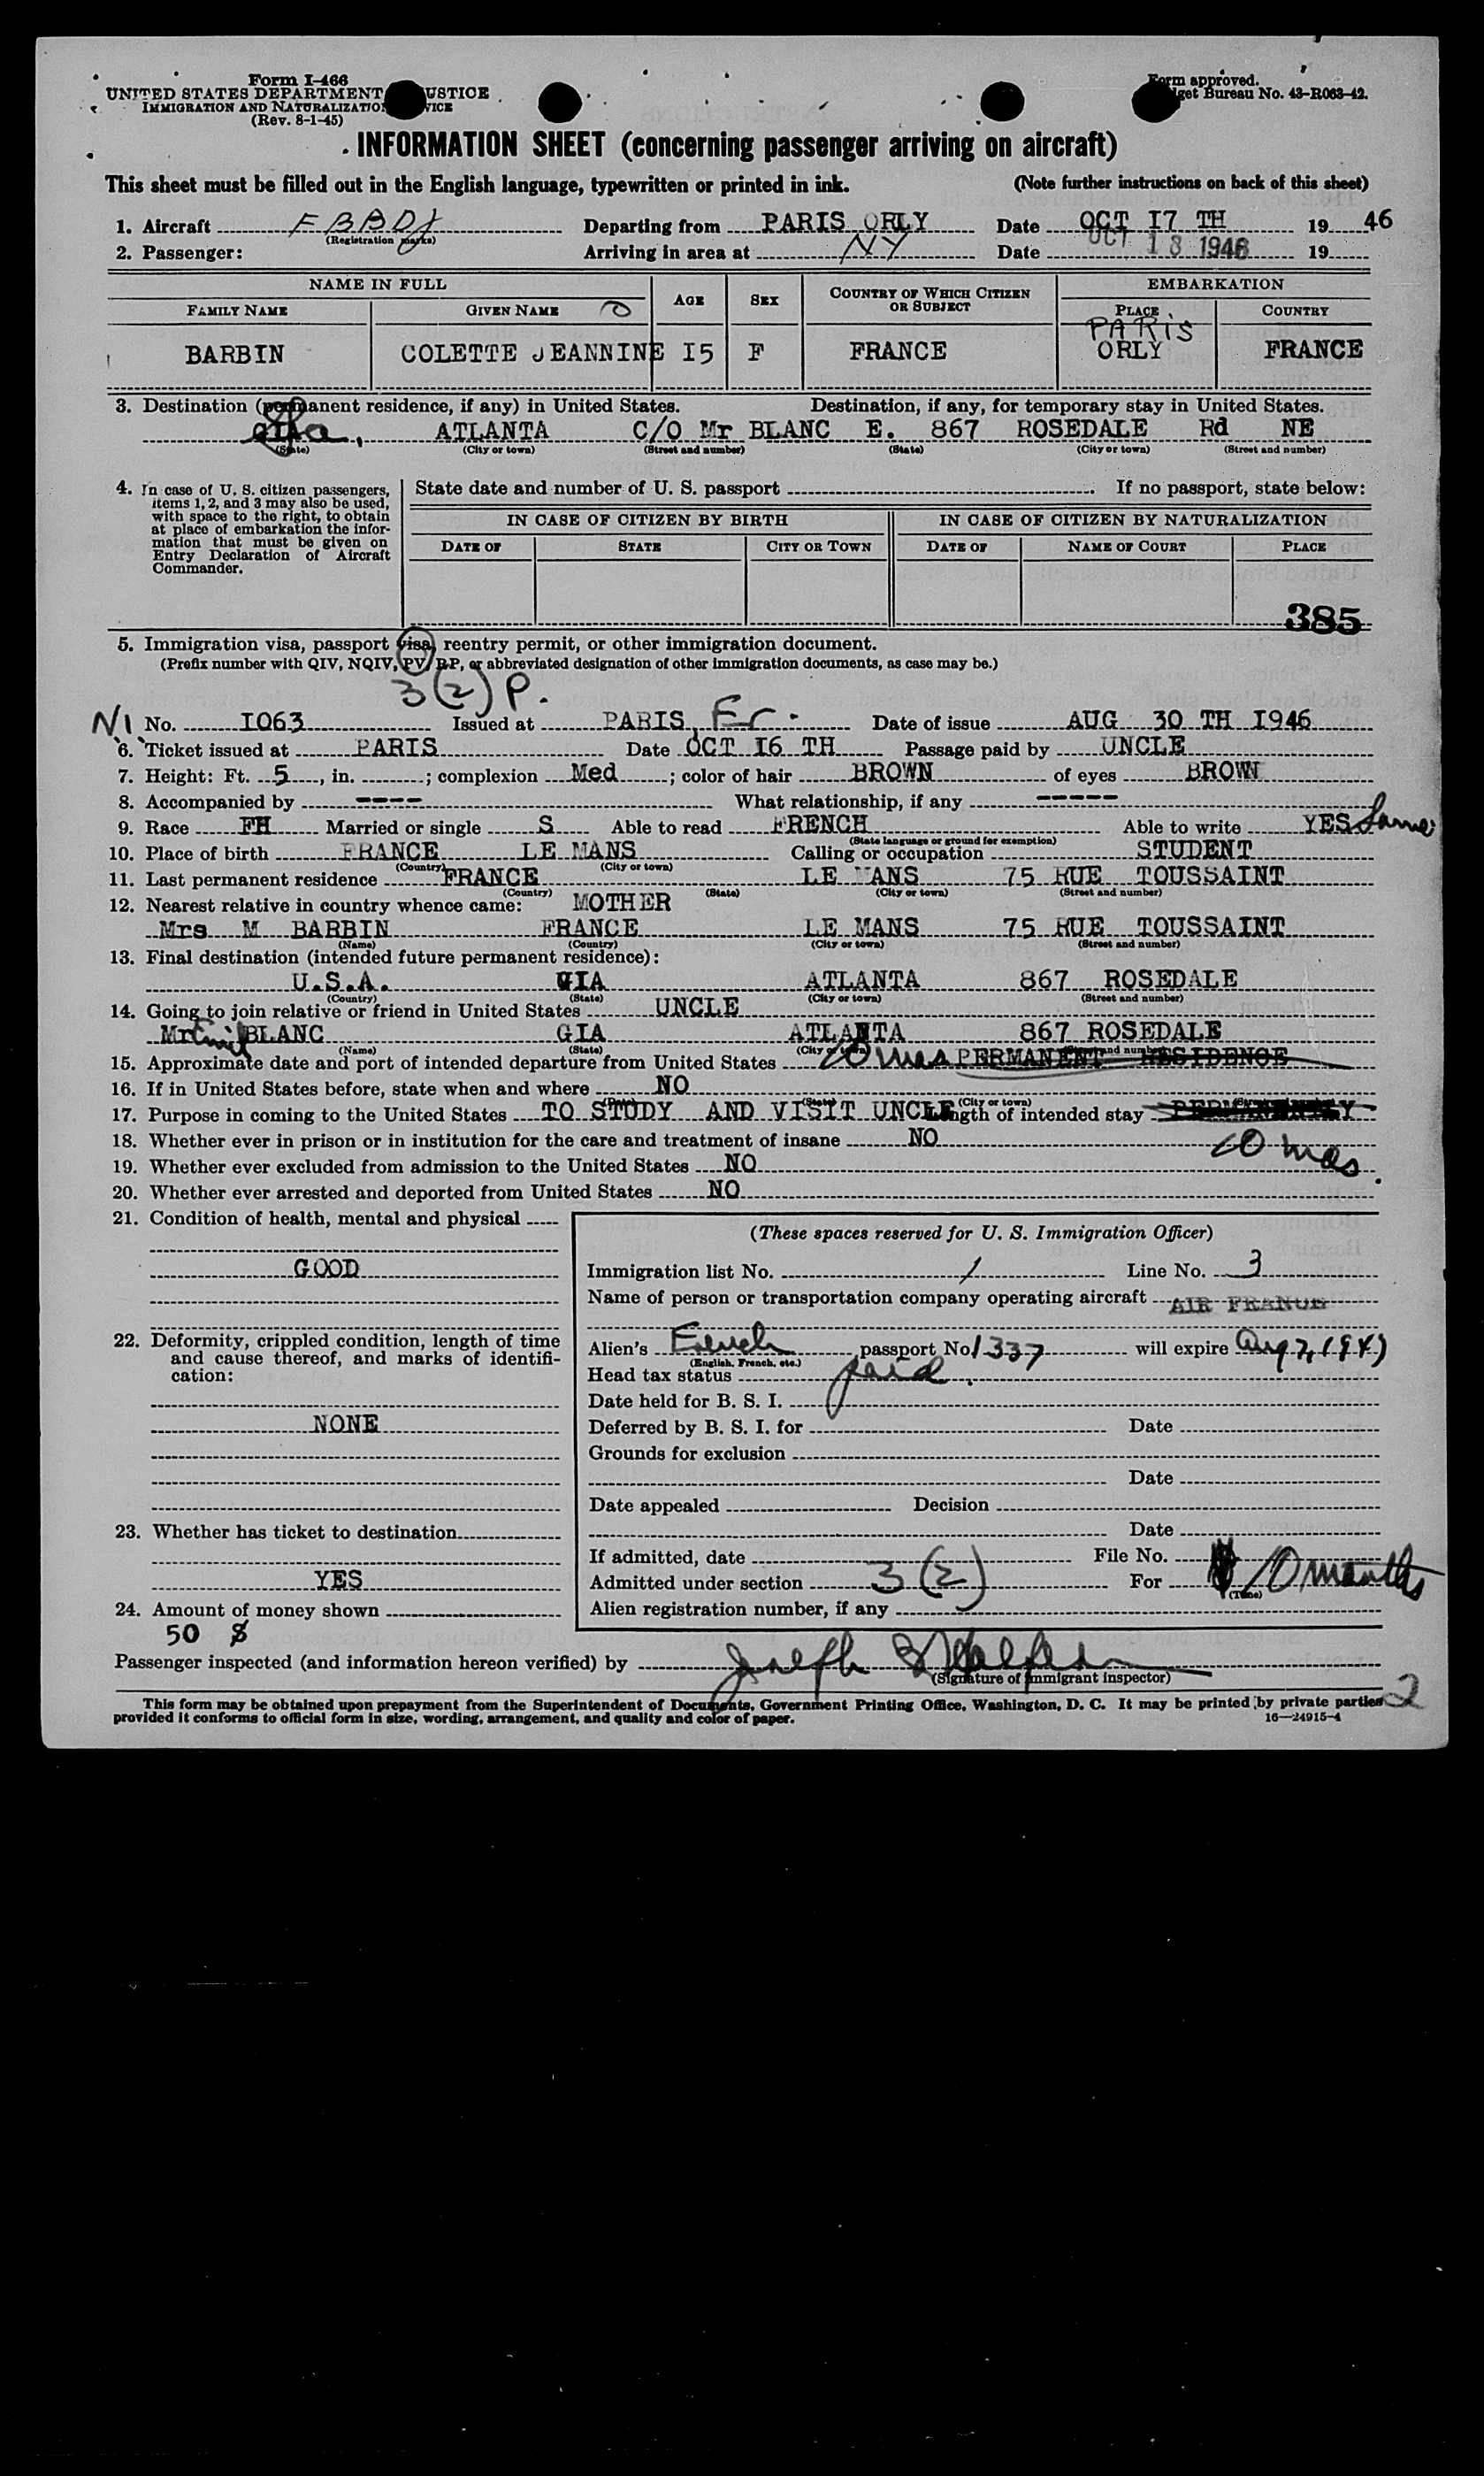 Form I-466
UNITED STATES DEPARTMENT USTICE
IMMIGRATION AND NATURALIZATION VICE
(Rev. 8-1-45)
Form approved.
get Bureau No. 43-R063-42.
INFORMATION SHEET (concerning passenger arriving on aircraft)
This sheet must be filled out in the English language, typewritten or printed in ink. (Note further instructions on back of this sheet)
1. Aircraft Departing from PARIS ORLY Date OCT I7 TH 19 46
(Registration marks)
2. Passenger: Arriving in area at NY Date OCT 18 1946 19
NAME IN FULL AGE SEX COUNTRY OF WHICH CITIZEN OR SUBJECT EMBARKATION
FAMILY NAME GIVEN NAME PLACE COUNTRY
PARIS
BARBIN COLETTE JEANNINE I5 F FRANCE ORLY FRANCE
3. Destination (permanent residence, if any) in United States. Destination, if any, for temporary stay in United States.
Ga, ATLANTA C/O Mr BLANC E. 867 ROSEDALE Rd NE
(State) (City or town) (Street and number) (State) (City or town) (Street and number)
4. In case of U. S. citizen passengers, items 1, 2, and 3 may also be used, with space to the right, to obtain at place of embarkation the information that must be given on Entry Declaration of Aircraft Commander.
State date and number of U. S. passport If no passport, state below:
IN CASE OF CITIZEN BY BIRTH IN CASE OF CITIZEN BY NATURALIZATION
DATE OF STATE CITY OR TOWN DATE OF NAME OF COURT PLACE
385
5. Immigration visa, passport visa, reentry permit, or other immigration document.
(Prefix number with QIV, NQIV, PV, RP, or abbreviated designation of other immigration documents, as case may be.)
3(2) P.
NI No. I063 Issued at PARIS, Fr. Date of issue AUG 30 TH I946
6. Ticket issued at PARIS Date OCT I6 TH Passage paid by UNCLE
7. Height: Ft. 5, in. ; complexion Med ; color of hair BROWN of eyes BROWN
8. Accompanied by ---- What relationship, if any -----
9. Race FH Married or single S Able to read FRENCH Able to write YES Same
(State language or ground for exemption)
10. Place of birth FRANCE LE MANS Calling or occupation STUDENT
(Country) (City or town)
11. Last permanent residence FRANCE LE MANS 75 RUE TOUSSAINT
(Country) (State) (City or town) (Street and number)
12. Nearest relative in country whence came: MOTHER
Mrs M BARBIN FRANCE LE MANS 75 RUE TOUSSAINT
(Name) (Country) (City or town) (Street and number)
13. Final destination (intended future permanent residence):
U.S.A. GIA ATLANTA 867 ROSEDALE
(Country) (State) (City or town) (Street and number)
14. Going to join relative or friend in United States UNCLE
Mr Emil BLANC GIA ATLANTA 867 ROSEDALE
(Name) (State) (City or town) (Street and number)
15. Approximate date and port of intended departure from United States 10 mos PERMANENT RESIDENCE
16. If in United States before, state when and where NO
(Date) (State) (City or town) (Street and number)
17. Purpose in coming to the United States TO STUDY AND VISIT UNCLE Length of intended stay PERMANENTLY
10 mos.
18. Whether ever in prison or in institution for the care and treatment of insane NO
19. Whether ever excluded from admission to the United States NO
20. Whether ever arrested and deported from United States NO
21. Condition of health, mental and physical
GOOD
22. Deformity, crippled condition, length of time and cause thereof, and marks of identification:
NONE
23. Whether has ticket to destination
YES
24. Amount of money shown
50 $
(These spaces reserved for U. S. Immigration Officer)
Immigration list No. 1 Line No. 3
Name of person or transportation company operating aircraft AIR FRANCE
Alien's French passport No. 1337 will expire Aug 7, 1947
(English, French, etc.)
Head tax status paid.
Date held for B. S. I.
Deferred by B. S. I. for Date
Grounds for exclusion
Date
Date appealed Decision
Date
If admitted, date File No.
Admitted under section 3(2) For 10 months
(Time)
Alien registration number, if any
Passenger inspected (and information hereon verified) by Joseph
(Signature of immigrant inspector)
This form may be obtained upon prepayment from the Superintendent of Documents, Government Printing Office, Washington, D. C. It may be printed by private parties 2
provided it conforms to official form in size, wording, arrangement, and quality and color of paper. 16—24915-4